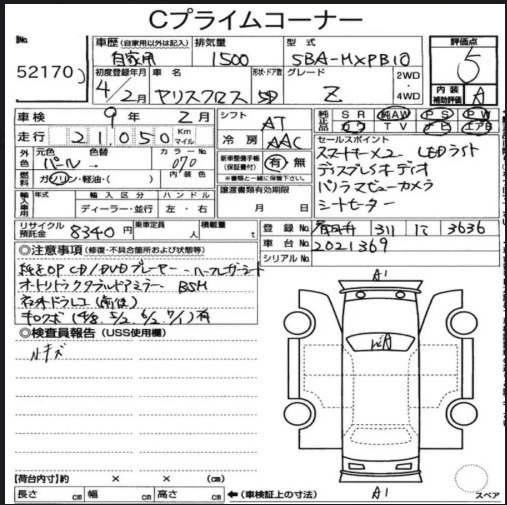 Cプライムコーナー
No.
52170
車歴 (自家用以外は記入)
自家用
排気量
1500
型式
5BA-MXPB10
評価点
5
内装
補助評価
A
初度登録年月
4/2月
車名
ヤリスクロス
形状・ドア数
5D
グレード
Z
2WD
・
4WD
車検
9年 2月
シフト
AT
純正品
SR 純AW PS PW
TV エアB
走行
21,050 Km
マイル
冷房
AAC
セールスポイント
スマートキー×2 LEDライト
ディスプレイオーディオ
パノラマビューカメラ
シートヒーター
外色
元色
パール
色替
カラーNo.
070
新車整備手帳
(保証書付)
有・無
※書類と一緒に保管して下さい。
燃料
ガソリン・軽油・( )
内装色
輸入車用
年式
輸入区分
ハンドル
ディーラー・並行
左・右
譲渡書類有効期限
月 日
リサイクル
預託金
8340円
乗車定員
人
積載量
t
登録No.
春日井 311 3636
車台No.
2021369
シリアルNo.
◎注意事項 (修復・不具合箇所および状態等)
純正OP CD/DVDプレーヤー ハーフレザーシート
オートリトラクタブルドアミラー BSM
社外ドラレコ(前後)
◎検査員報告 (USS使用欄)
小キズ
A1
A1
【荷台内寸】約 × × (cm)
長さ cm 幅 cm 高さ cm
←(車検証上の寸法)
スペア